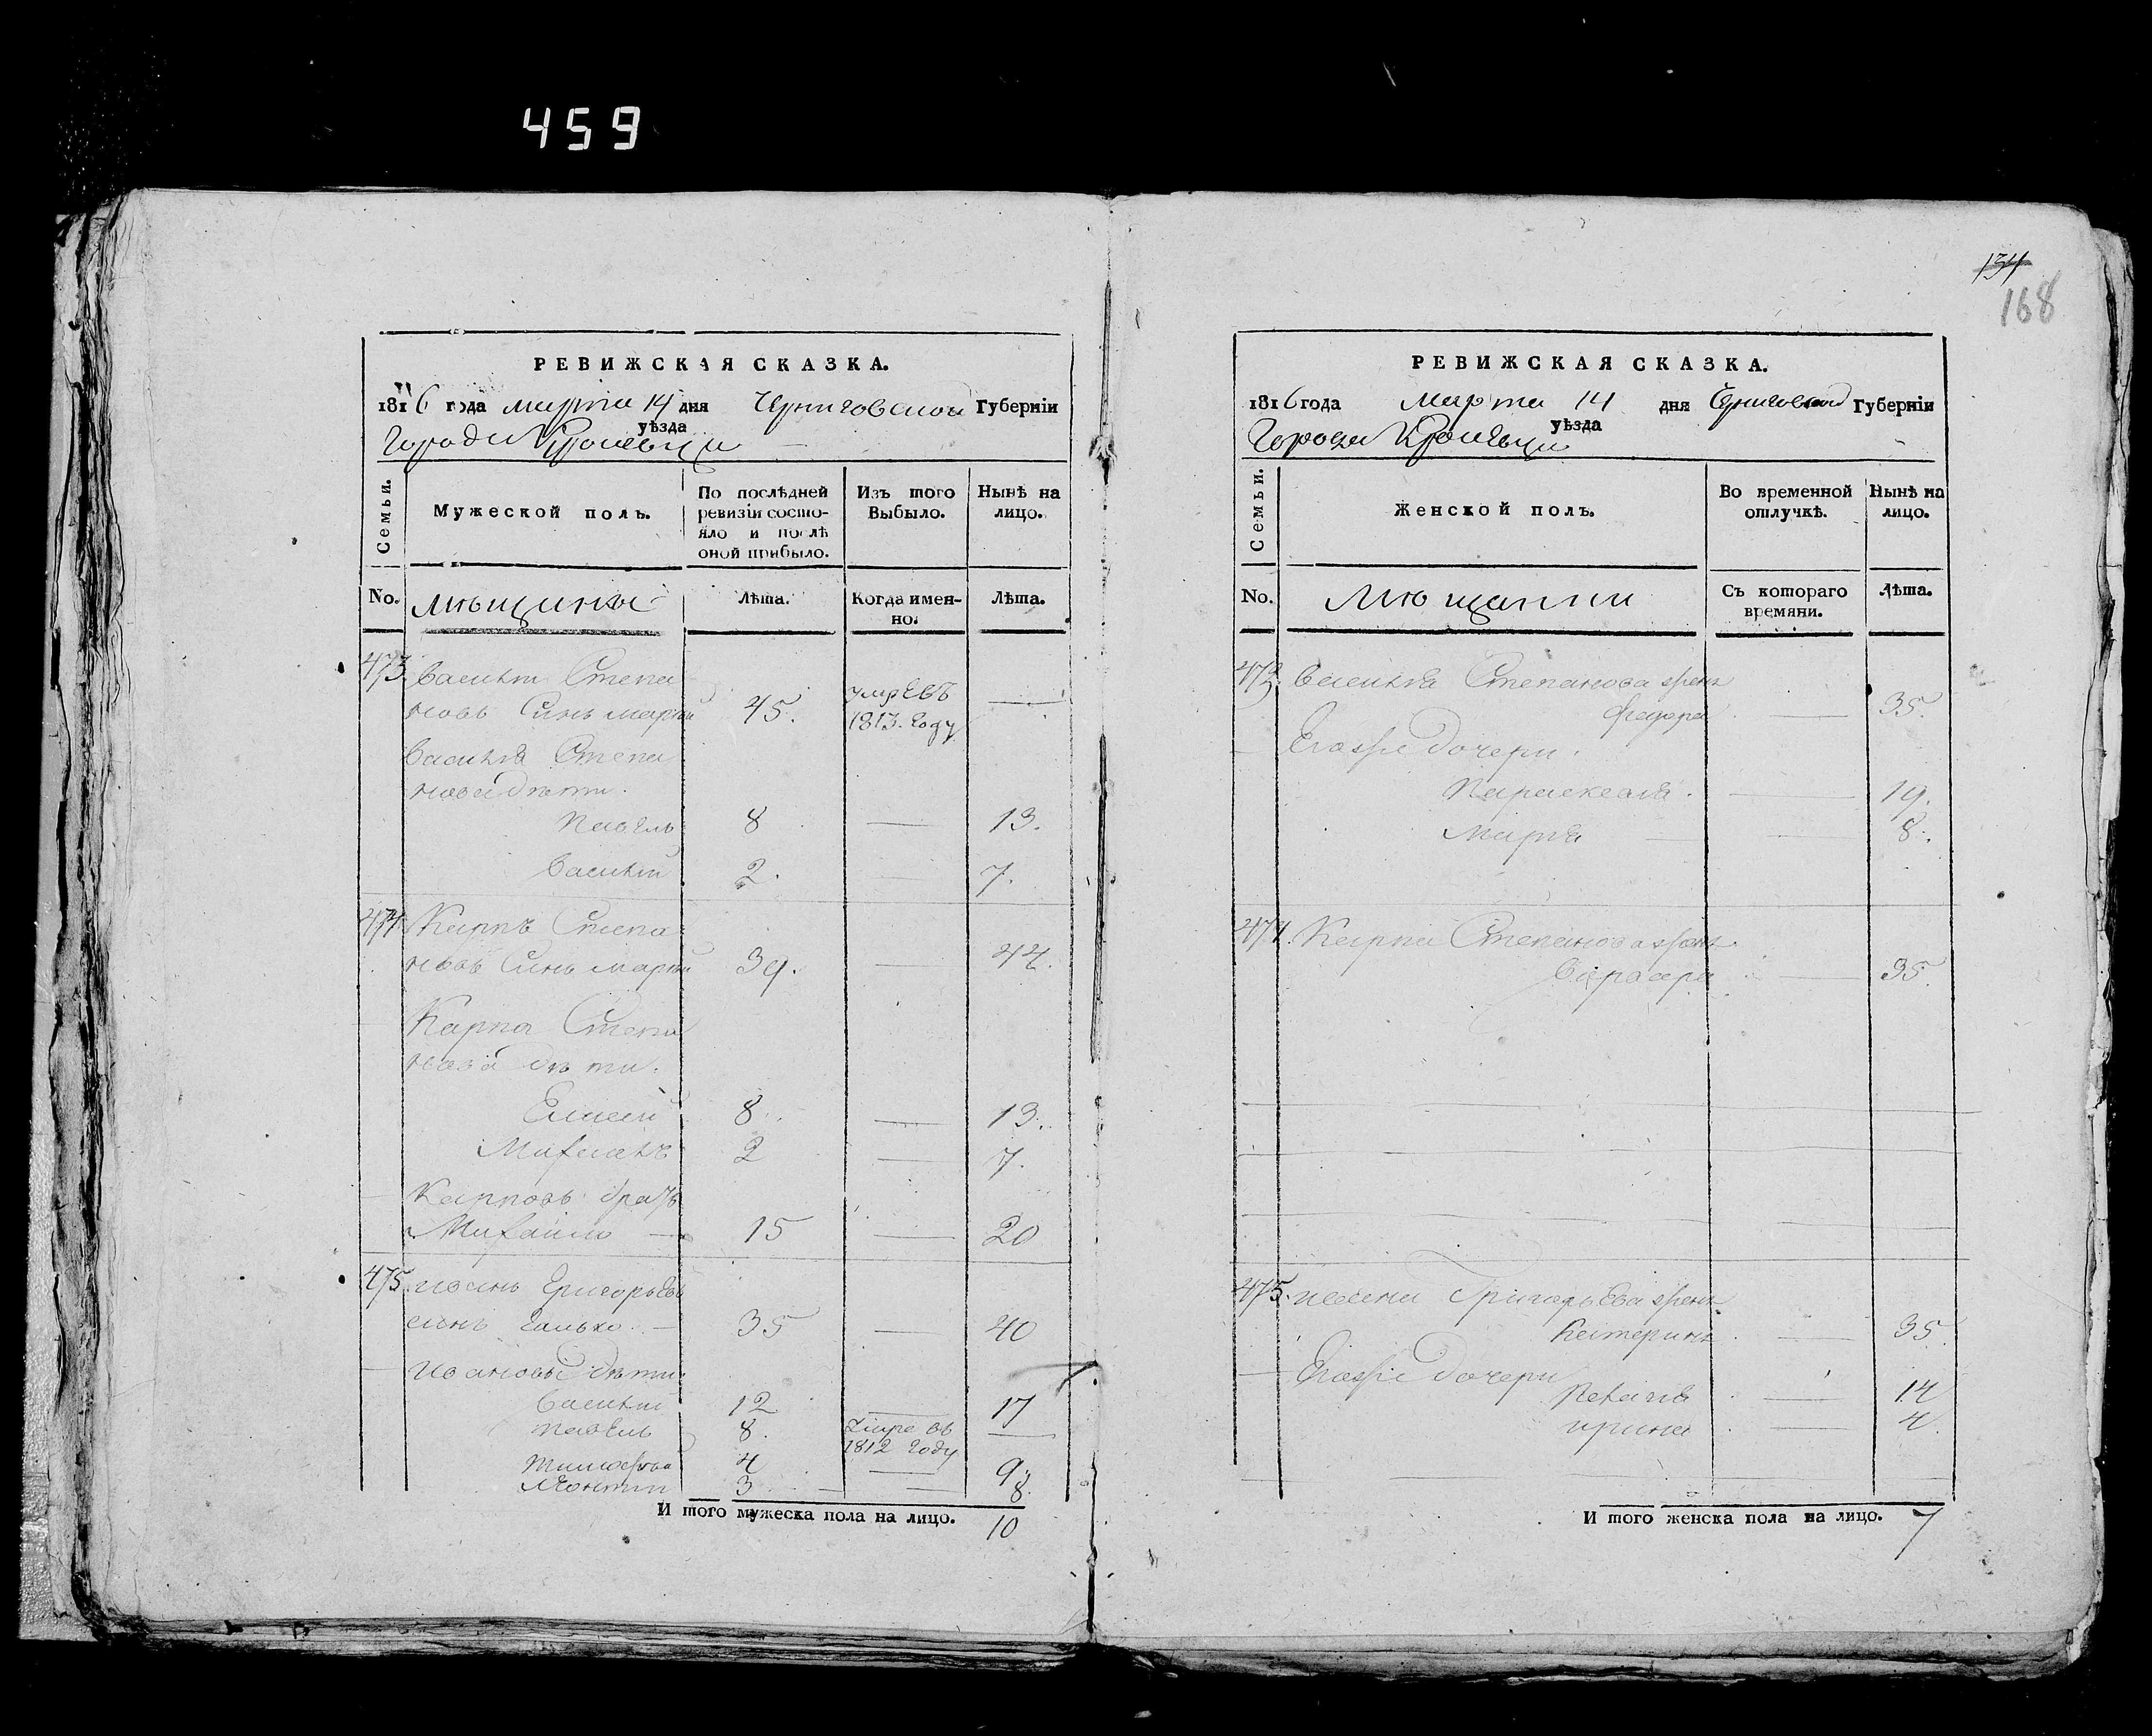 459
134
168
РЕВИЖСКАЯ СКАЗКА.
1816 года марта 14 дня Черниговской Губерніи
уѣзда
Города Кролевца
Семьи.
Мужеской полъ.
По послѣдней ревизіи состо-
яло и послѣ
оной прибыло.
Изъ того
Выбыло.
Нынѣ на
лицо.
No.
Мѣщины
Лѣта.
Когда имен-
но.
Лѣта.
473 Василій Степа
новъ Синъ 45. умре въ
1813. году
Василія Степа
нова дѣти.
Павелъ 8 — 13.
Василій 2. — 7.
474 Карпъ Степа
новъ Синъ 39. — 44.
Карпа Степа
нова дѣти.
Елисей 8 — 13.
2 — 7.
Карповъ братъ
Михайло — 15 — 20
475 Иванъ Григорьевъ
синъ 35 — 40
Ивановы дѣти
Василій 12 — 17
Павелъ 8. Умре въ —
1812 году
Тимофѣй 4 — 9.
Леонтій 3 — 8.
И того мужеска пола на лицо. 10
РЕВИЖСКАЯ СКАЗКА.
1816 года Марта 14 дня Черниговской Губерніи
уѣзда
Города Кролевца
Семьи.
Женской полъ.
Во временной
отлучкѣ.
Нынѣ на
лицо.
No.
Мѣщанки
Съ котораго
времяни.
Лѣта.
473. Василія Степанова жена
Федора — 35.
Егоже дочери.
Параскевія. — 19.
Марія — 8.
474. Карпа Степанова жена
Варвара — 35.
475. Ивана Григорьева жена
Катерина — 35.
Егоже дочери
— 14
Ирина — 4.
И того женска пола на лицо. 7